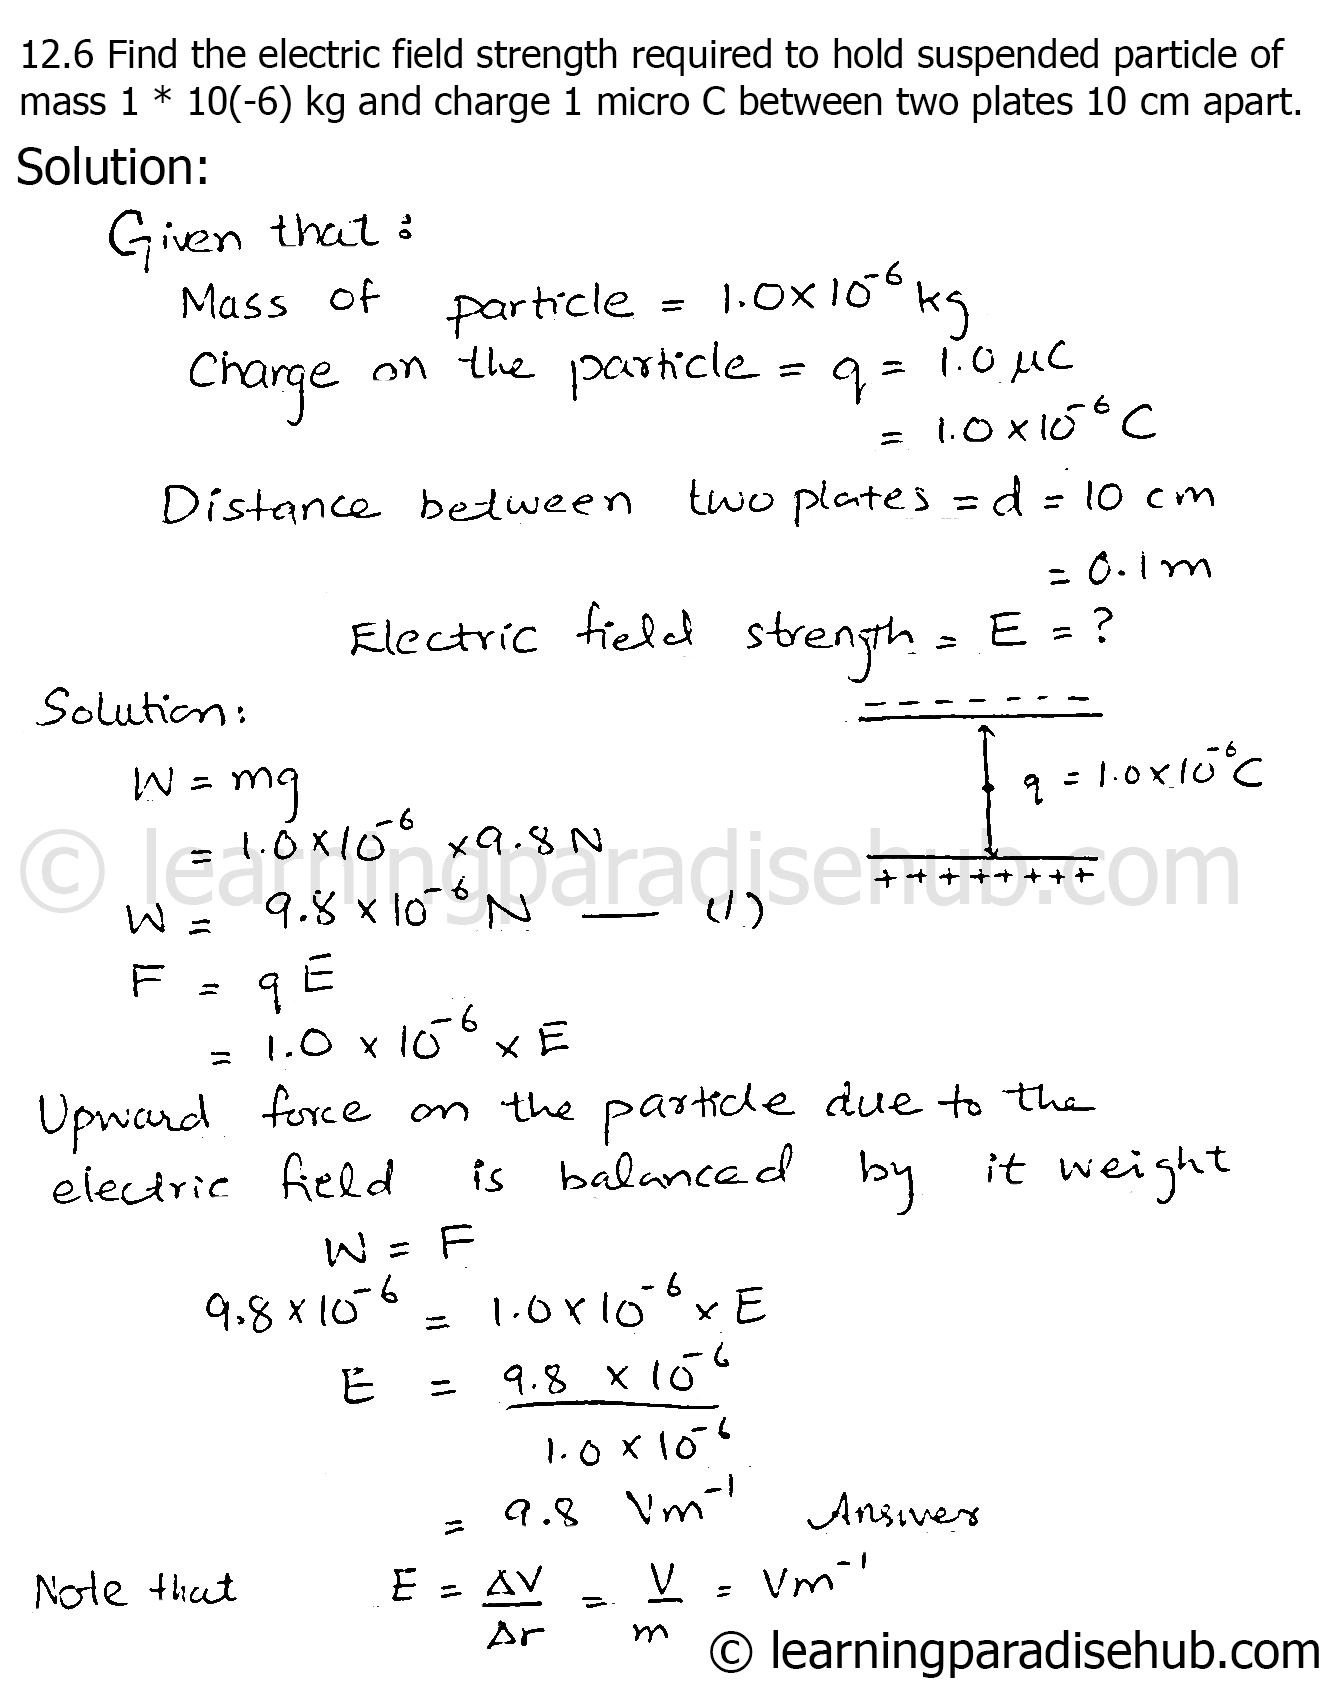 12.6 Find the electric field strength required to hold suspended particle of
mass 1 * 10(-6) kg and charge 1 micro C between two plates 10 cm apart.
Solution:
Given that :
Mass of particle = 1.0×10⁻⁶ kg
Charge on the particle = q = 1.0 μC
= 1.0 ×10⁻⁶ C
Distance between two plates = d = 10 cm
= 0.1 m
Electric field strength = E = ?
Solution:
- - - - - - -
W = mg
q = 1.0×10⁻⁶C
= 1.0×10⁻⁶ ×9.8 N
© learningparadisehub.com
+ + + + + + + +
W = 9.8 × 10⁻⁶ N — (1)
F = qE
= 1.0 × 10⁻⁶ × E
Upward force on the particle due to the
electric field is balanced by it weight
W = F
9.8 × 10⁻⁶ = 1.0×10⁻⁶ × E
E = 9.8 × 10⁻⁶
1.0 × 10⁻⁶
= 9.8 Vm⁻¹ Answer
Note that E = ΔV/Δr = V/m = Vm⁻¹
© learningparadisehub.com